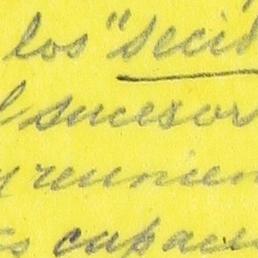 los "secid
sucesor
y reunien
capaci